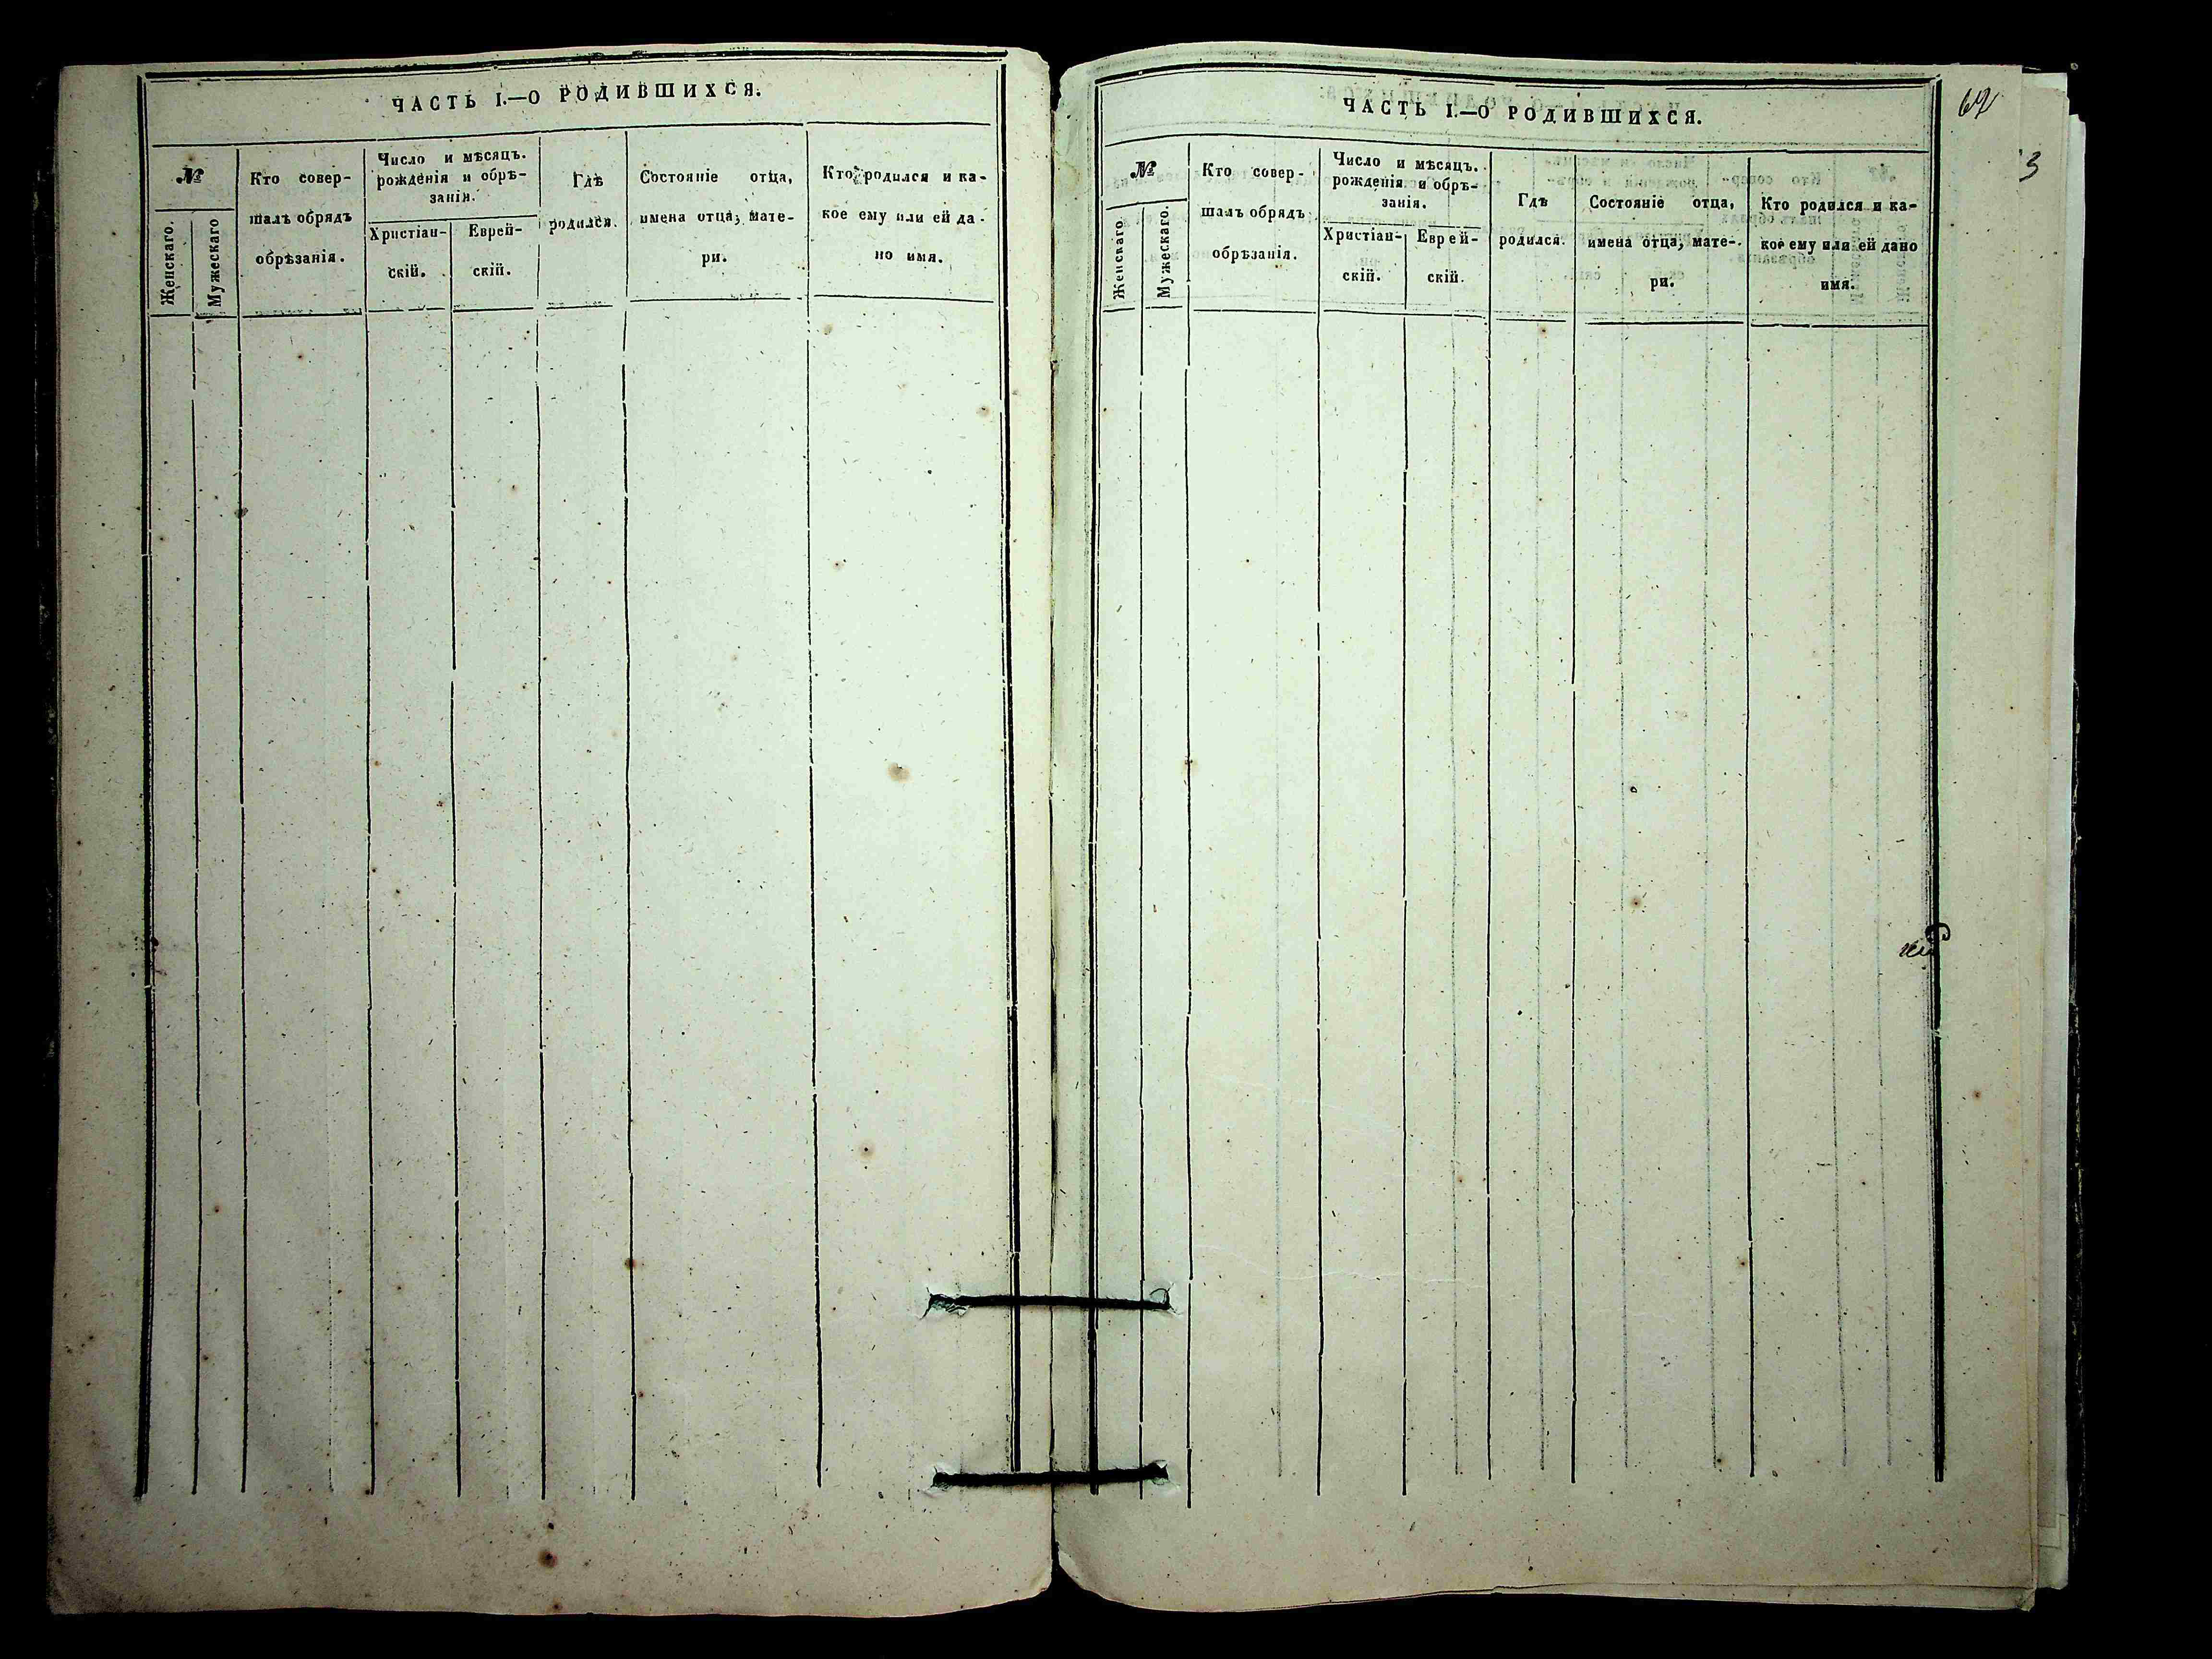 ЧАСТЬ I.—О РОДИВШИХСЯ.
№
Женскаго.
Мужескаго
Кто совер-
шалъ обрядъ
обрѣзанія.
Число и мѣсяцъ.
рожденія и обрѣ-
занія.
Христіан-
скій.
Еврей-
скій.
Гдѣ
родился.
Состояніе отца,
имена отца, мате-
ри.
Кто родился и ка-
кое ему или ей да-
но имя.
62
3
ЧАСТЬ I.—О РОДИВШИХСЯ.
№
Женскаго
Мужескаго.
Кто совер-
шалъ обрядъ
обрѣзанія.
Число и мѣсяцъ.
рожденія и обрѣ-
занія.
Христіан-
скій.
Еврей-
скій.
Гдѣ
родился.
Состояніе отца,
имена отца, мате-
ри.
Кто родился и ка-
кое ему или ей дано
имя.